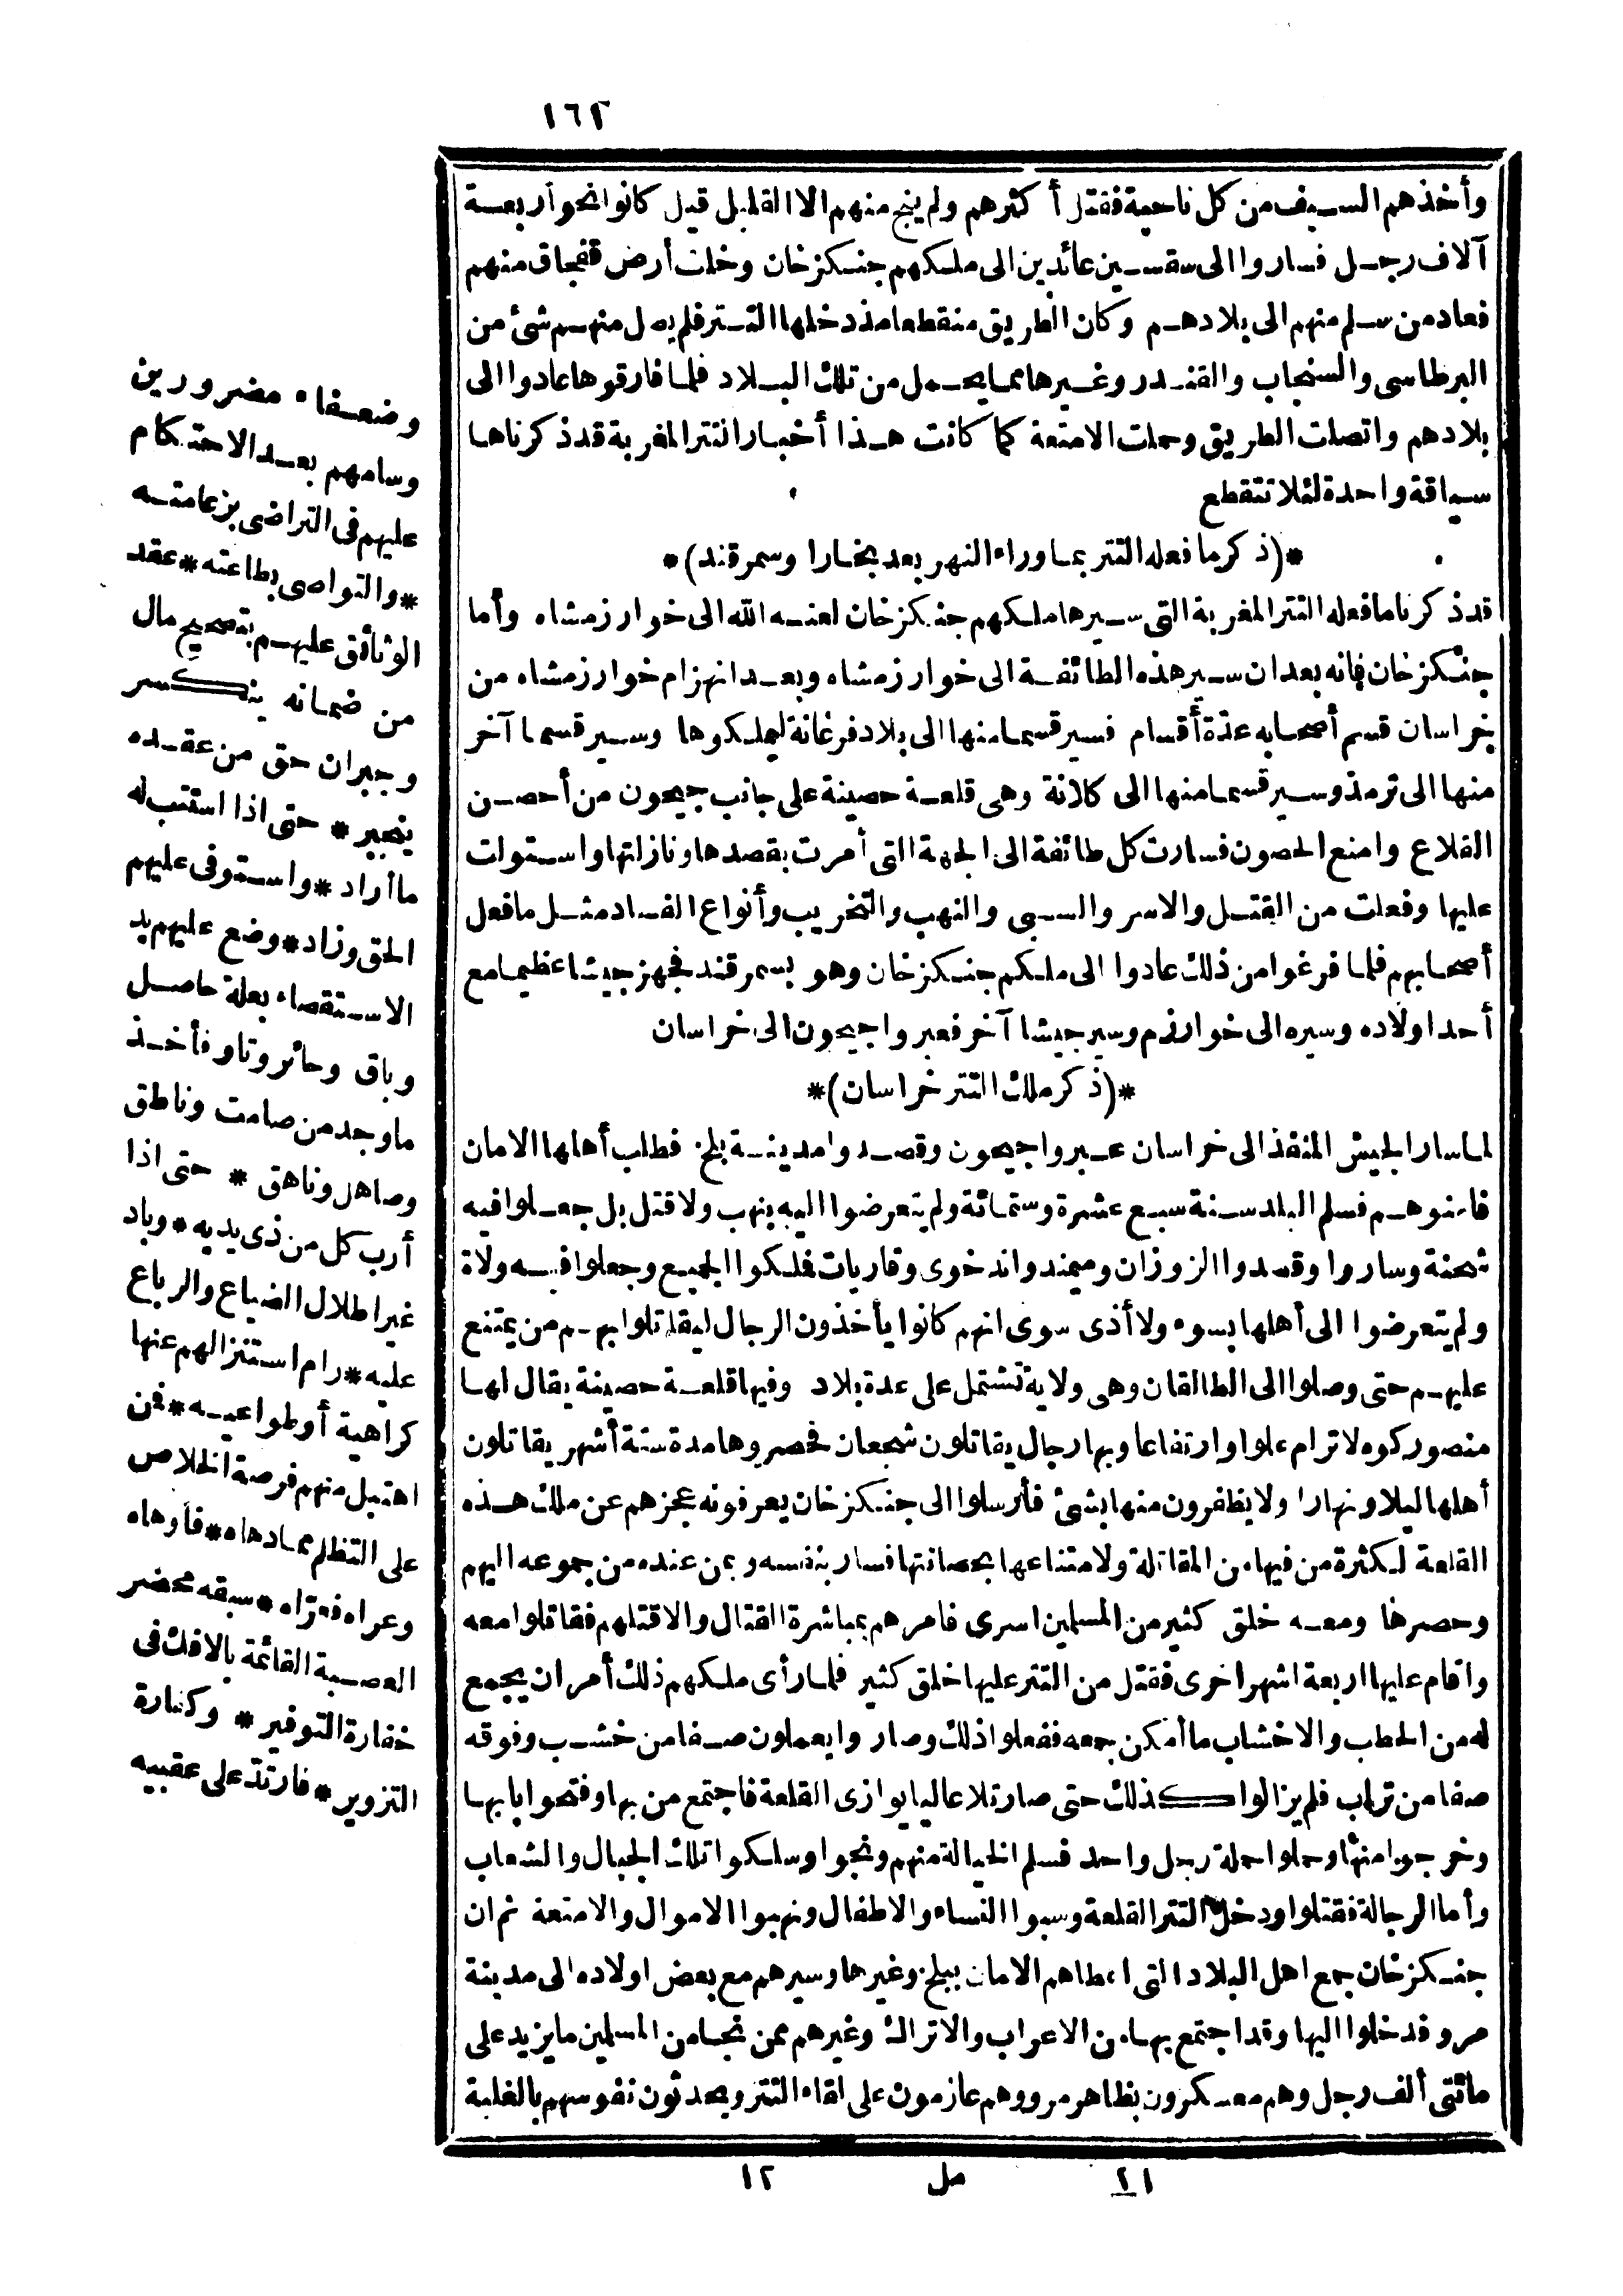 ١٦١
وأخذهم السيف من كل ناحية فقتل أكثرهم ولم ينج منهم الا القليل قيل كانوا نحو أربعة
آلاف رجل فساروا الى سقسين عائدين الى ملكهم جنكزخان وخلت أرض قفجاق منهم
فعاد من سلم منهم الى بلادهم وكان الطريق منقطعا مذ دخلها التتر فلم يصل منهم شئ من
البرطاسى والسنجاب والقندر وغيرها مما يحمل من تلك البلاد فلما فارقوها عادوا الى
بلادهم واتصلت الطريق وحملت الامتعة كما كانت هذا أخبار التتر المغربة قد ذكرناها
سياقة واحدة لئلا تنقطع
*(ذكر ما فعله التتر بما وراء النهر بعد بخارا وسمرقند)*
قد ذكرنا ما فعله التتر المغربة التى سيرها ملكهم جنكزخان لعنه الله الى خوارزمشاه وأما
جنكزخان فانه بعد ان سير هذه الطائفة الى خوارزمشاه وبعد انهزام خوارزمشاه من
خراسان قسم أصحابه عدة أقسام فسير قسما منها الى بلاد فرغانة ليملكوها وسير قسما آخر
منها الى ترمذ وسير قسما منها الى كلانة وهى قلعة حصينة على جانب جيحون من أحصن
القلاع وامنع الحصون فسارت كل طائفة الى الجهة التى أمرت بقصدها ونازلتها واستولت
عليها وفعلت من القتل والاسر والسبى والنهب والتخريب وأنواع الفساد مثل ما فعل
أصحابهم فلما فرغوا من ذلك عادوا الى ملكهم جنكزخان وهو بسمرقند فجهز جيشا عظيما مع
أحد اولاده وسيره الى خوارزم وسير جيشا آخر فعبروا جيحون الى خراسان
*(ذكر ملك التتر خراسان)*
لما سار الجيش المنفذ الى خراسان عبروا جيحون وقصدوا مدينة بلخ فطلب أهلها الامان
فامنوهم فسلم البلد سنة سبع عشرة وستمائة ولم يتعرضوا اليه بنهب ولا قتل بل جعلوا فيه
شحنة وساروا وقصدوا الزوزان وميمند واندخوى وقاريات فملكوا الجميع وجعلوا فيه ولاة
ولم يتعرضوا الى أهلها بسوء ولا أذى سوى انهم كانوا يأخذون الرجال ليقاتلوا بهم من يمتنع
عليهم حتى وصلوا الى الطالقان وهى ولاية تشتمل على عدة بلاد وفيها قلعة حصينة يقال لها
منصوركوه لا ترام علوا وارتفاعا وبها رجال يقاتلون شجعان فحصروها مدة ستة أشهر يقاتلون
أهلها ليلا ونهارا ولا يظفرون منها بشئ فأرسلوا الى جنكزخان يعرفونه عجزهم عن ملك هذه
القلعة لكثرة من فيها من المقاتلة ولامتناعها بحصانتها فسار بنفسه وبمن عنده من جموعه اليهم
وحصرها ومعه خلق كثير من المسلمين اسرى فامرهم بمباشرة القتال والا قتلهم فقاتلوا معه
واقام عليها اربعة اشهر اخرى فقتل من التتر عليها خلق كثير فلما رأى ملكهم ذلك أمر ان يجمع
له من الحطب والاخشاب ما أمكن جمعه ففعلوا ذلك وصاروا يعملون صفا من خشب وفوقه
صفا من تراب فلم يزالوا كذلك حتى صار تلا عاليا يوازى القلعة فاجتمع من بها وفتحوا بابها
وخرجوا منها وحملوا حملة رجل واحد فسلم الخيالة منهم ونجوا وسلكوا تلك الجبال والشعاب
وأما الرجالة فقتلوا ودخل التتر القلعة وسبوا النساء والاطفال ونهبوا الاموال والامتعة ثم ان
جنكزخان جمع اهل البلاد التى اعطاهم الامان ببلخ وغيرها وسيرهم مع بعض اولاده الى مدينة
مرو فدخلوا اليها وقد اجتمع بها من الاعراب والاتراك وغيرهم ممن نجا من المسلمين ما يزيد على
مائتى ألف رجل وهم معسكرون بظاهر مرو وهم عازمون على لقاء التتر ويحدثون نفوسهم بالغلبة
وضعفاء مضرورين
وسامهم بعد الاحتكام
عليهم فى التراضى بزعامته
*والتواصى بطاعته*عقد
الوثائق عليهم بتصحيح مال
من ضمانه ينكسر
وجبران حق من عقده
ينجبر * حتى اذا استتب له
ما أراد*واستوفى عليهم
الحق وزاد*وضع عليهم يد
الاستقصاء بعلة حاصل
وباق وحائر وتاو فأخذ
ما وجد من صامت وناطق
وصاهل وناهق * حتى اذا
أرب كل من ذى يديه*وباد
غير اطلال الضياع والرباع
عليه*رام استنزالهم عنها
كراهية أو طواعيه*فمن
اهتبل منهم فرصة الخلاص
على التظلم مما دهاه*فآوهاه
وعراه فعرّاه*سبقه محضر
العصبة القائمة بالافك فى
خفارة التوفير * وكنارة
التزوير*فارتد على عقبيه
٢١ مل ١٢